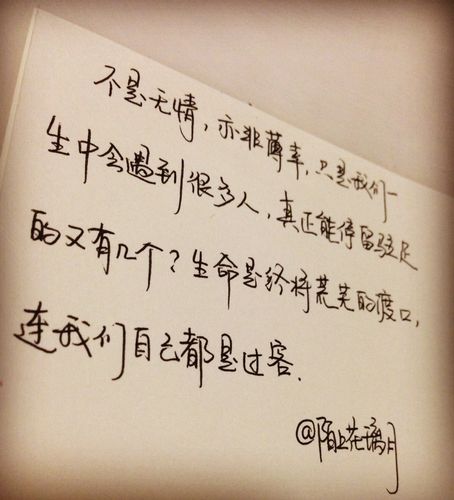 不是无情，亦非薄幸，只是我们一
生中会遇到很多人，真正能停留驻足
的又有几个？生命是终将荒芜的渡口，
连我们自己都是过客.
@陌上花璃月